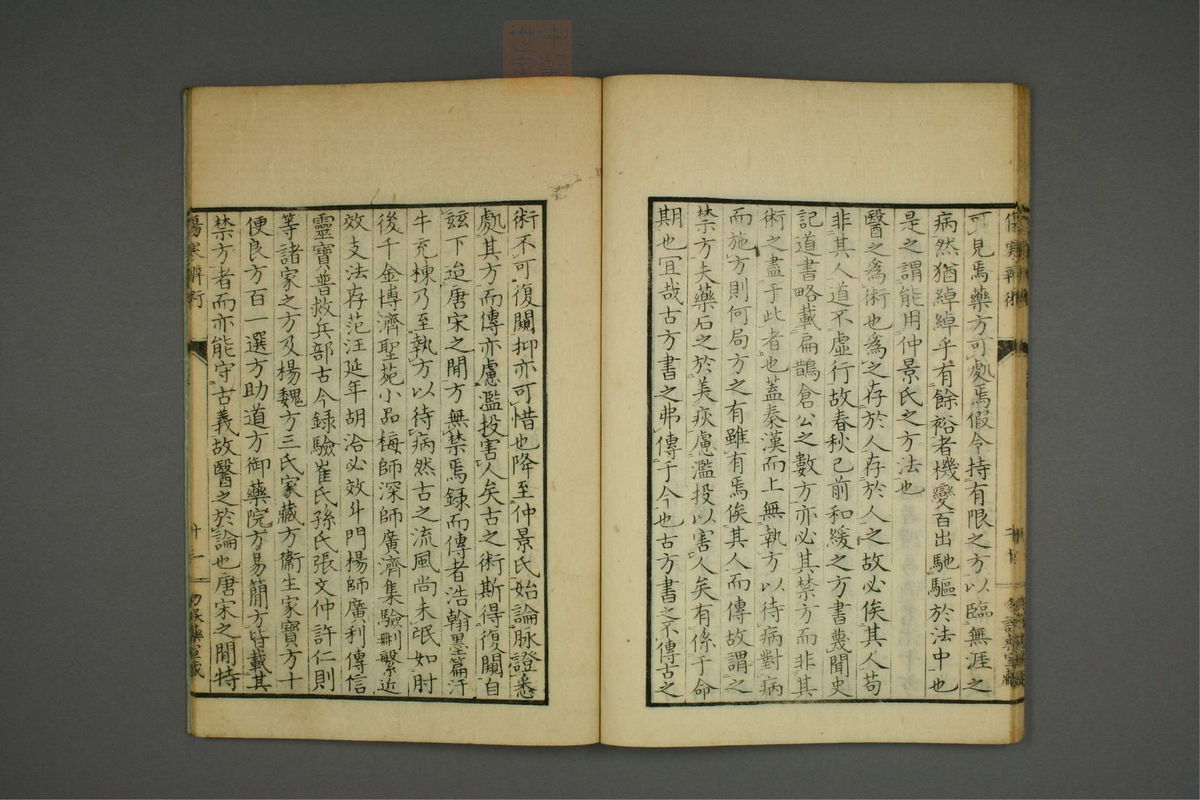 可見焉藥方可處焉假令持有限之方以臨無涯之
病然猶綽綽乎有餘裕者機變百出馳驅於法中也
是之謂能用仲景氏之方法也
醫之為術也為之存於人存於人之故必俟其人苟
非其人道不虛行故春秋已前和緩之方書蔑聞史
記道書略載扁鵲倉公之數方亦必其禁方而非其
術之盡于此者也蓋秦漢而上無執方以待病對病
而施方則何局方之有雖有焉俟其人而傳故謂之
禁方夫藥石之於美疢慮濫投以害人矣有係于命
期也冝哉古方書之弗傳于今也古方書之不傳古之
術不可復闚抑亦可惜也降至仲景氏始論脉證悉
處其方而傳亦慮濫投害人矣古之術斯得復闚自
玆下迨唐宋之間方無禁焉録而傳者浩翰墨篇汗
牛充棟乃至執方以待病然古之流風尚未氓如肘
後千金博濟聖苑小品梅師深師廣濟集驗刪繁近
效支法存范汪延年胡洽必效斗門楊師廣利傳信
靈寶普救兵部古今録驗崔氏孫氏張文仲許仁則
等諸家之方及楊魏方三氏家藏方衞生家寶方十
便良方百一選方助道方御藥院方易簡方皆載其
禁方者而亦能守古義故醫之於論也唐宋之間特
傷寒辨術
十一